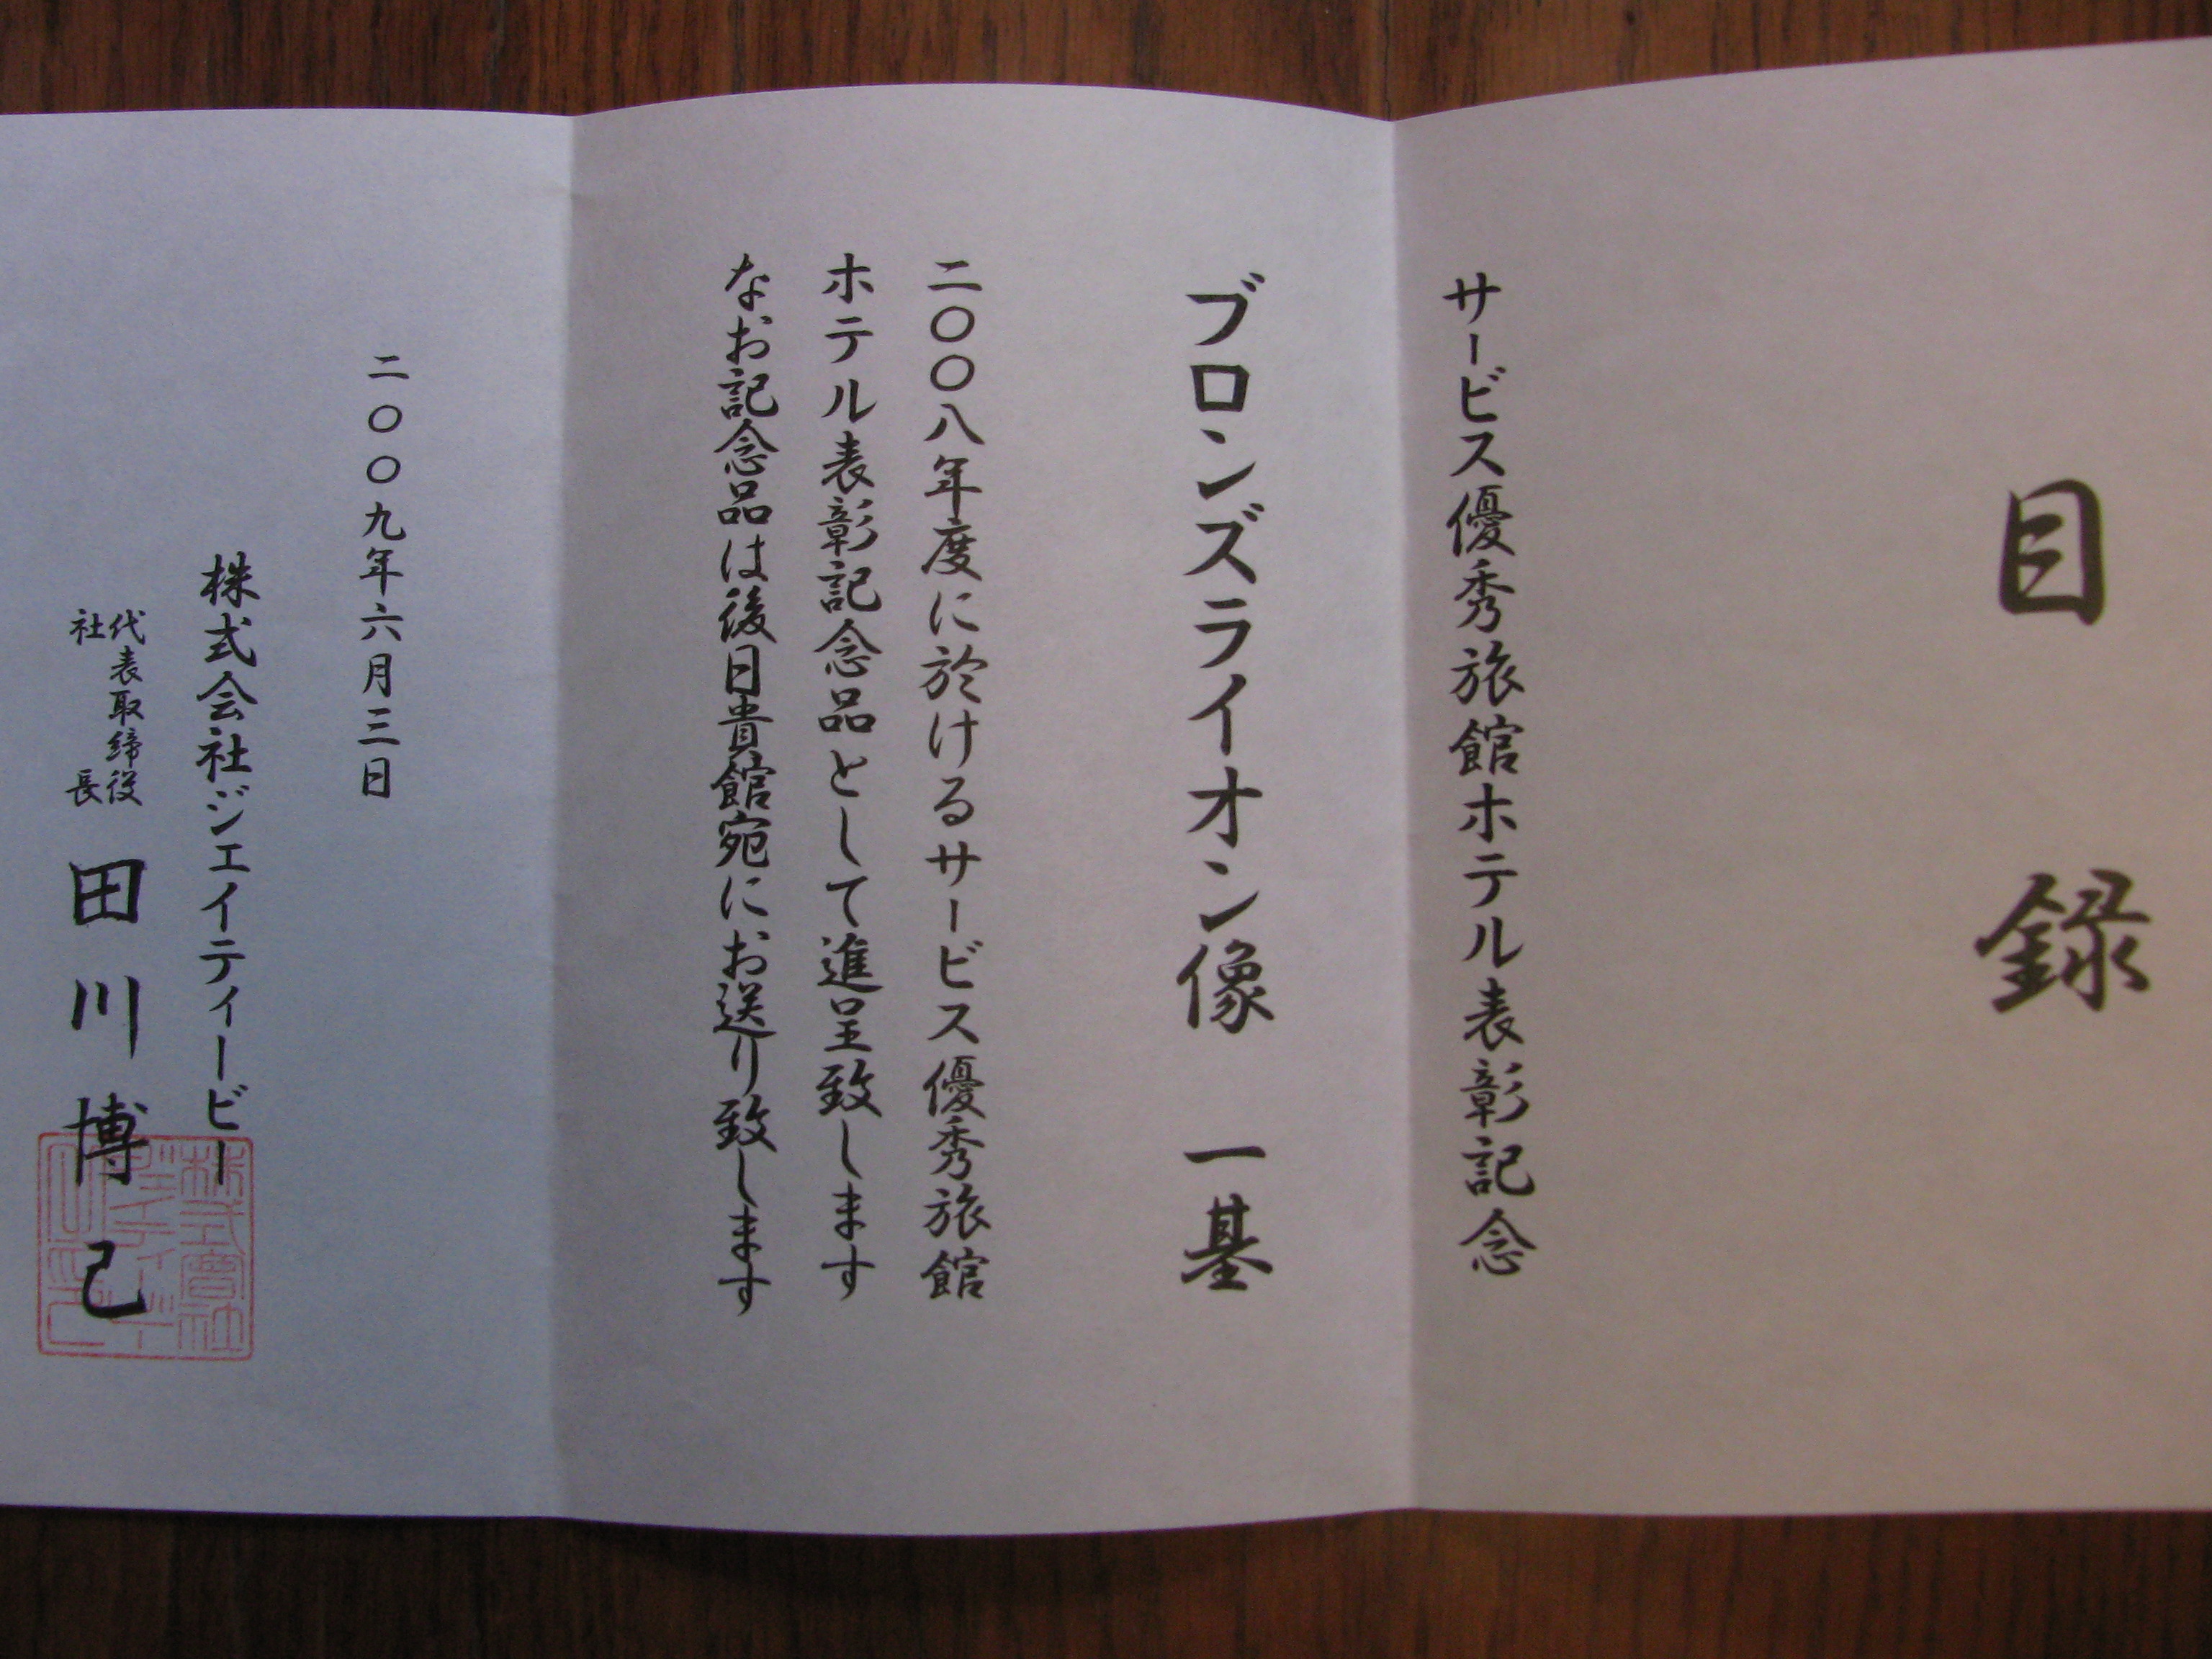 目録
サービス優秀旅館ホテル表彰記念
ブロンズライオン像 一基
二〇〇八年度に於けるサービス優秀旅館
ホテル表彰記念品として進呈致します
なお記念品は後日貴館宛にお送り致します
二〇〇九年六月三日
株式会社ジェイティービー
代表取締役
社長
田川博己